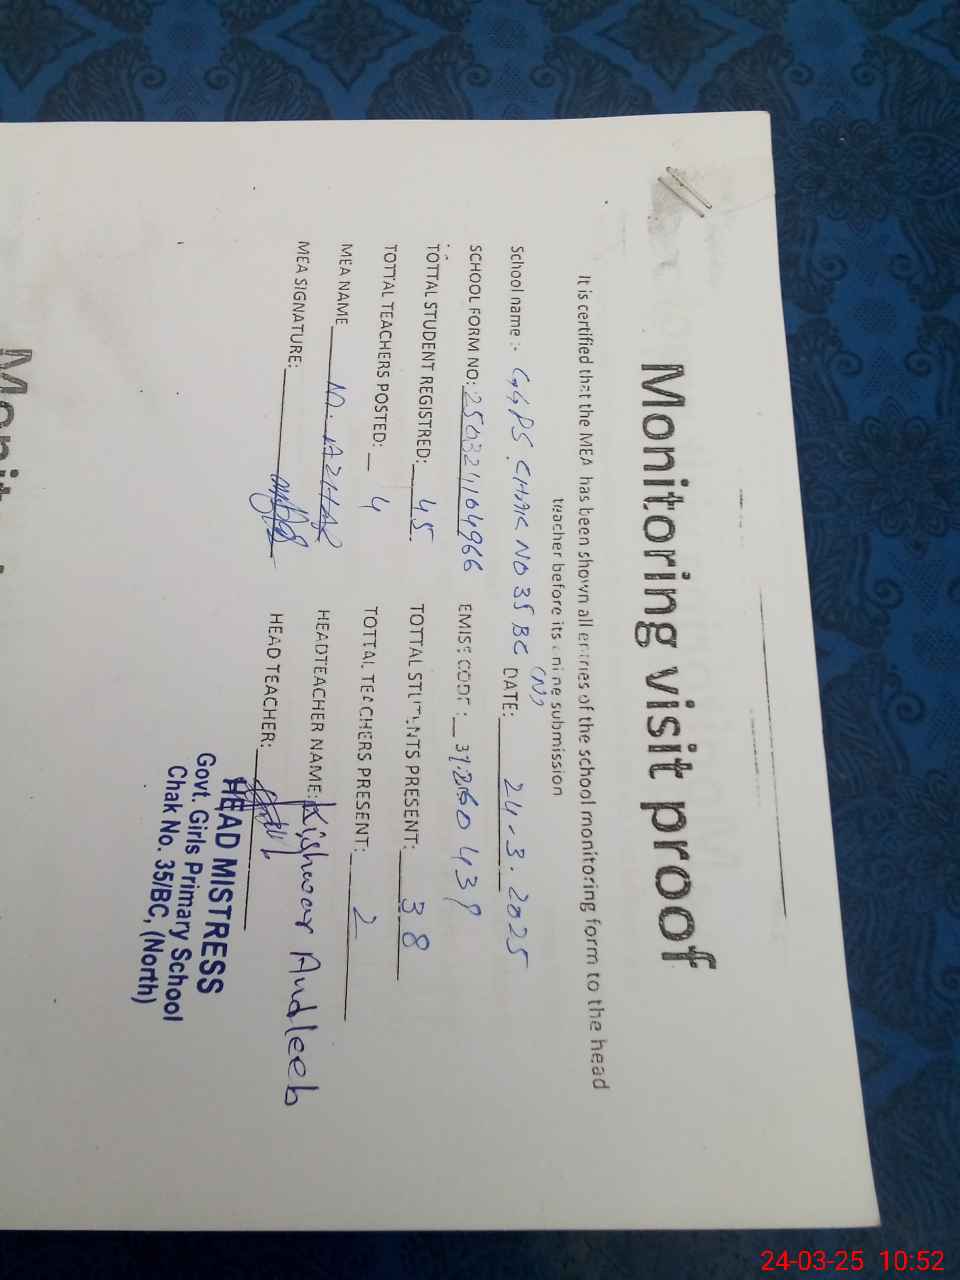 Monitoring visit proof
It is certified that the MEA has been shown all entries of the school monitoring form to the head
teacher before its online submission
School name :- GGPS. CHAK NO 35 BC (N) DATE: 24-3.2025
SCHOOL FORM NO: EMISE CODE:
TOTTAL STUDENT REGISTRED: 45 TOTTAL STUDENTS PRESENT: 38
TOTTAL TEACHERS POSTED: 4 TOTTAL TEACHERS PRESENT: 2
MEA NAME M. AZHAR HEADTEACHER NAME: Kishwar Andleeb
MEA SIGNATURE: HEAD TEACHER:
HEAD MISTRESS
Govt. Girls Primary School
Chak No. 35/BC, (North)
24-03-25 10:52